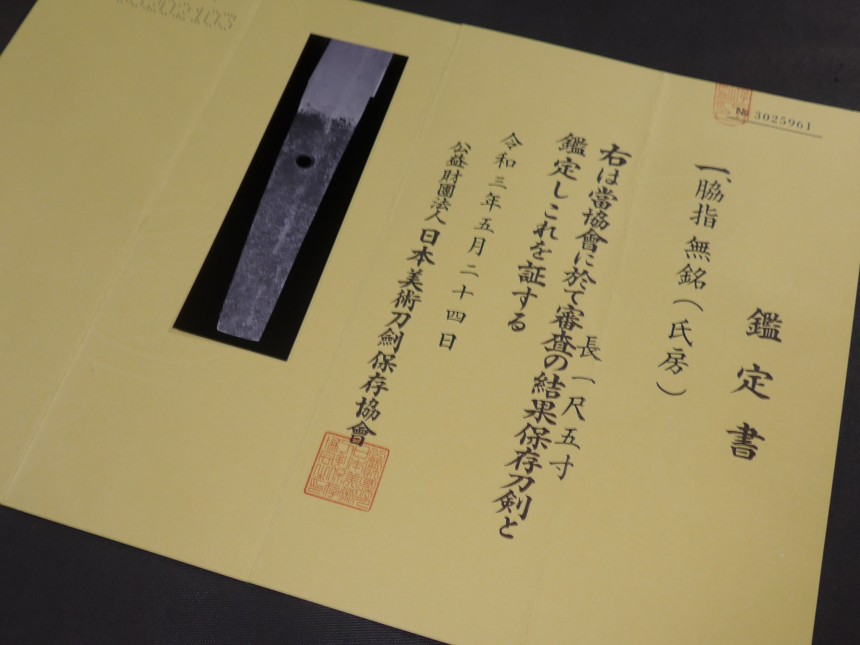 № 3025961
鑑定書
一、脇指 無銘(氏房)
長一尺五寸
右は當協會に於て審査の結果保存刀剣と
鑑定しこれを証する
令和三年五月二十四日
公益財團法人 日本美術刀劍保存協會